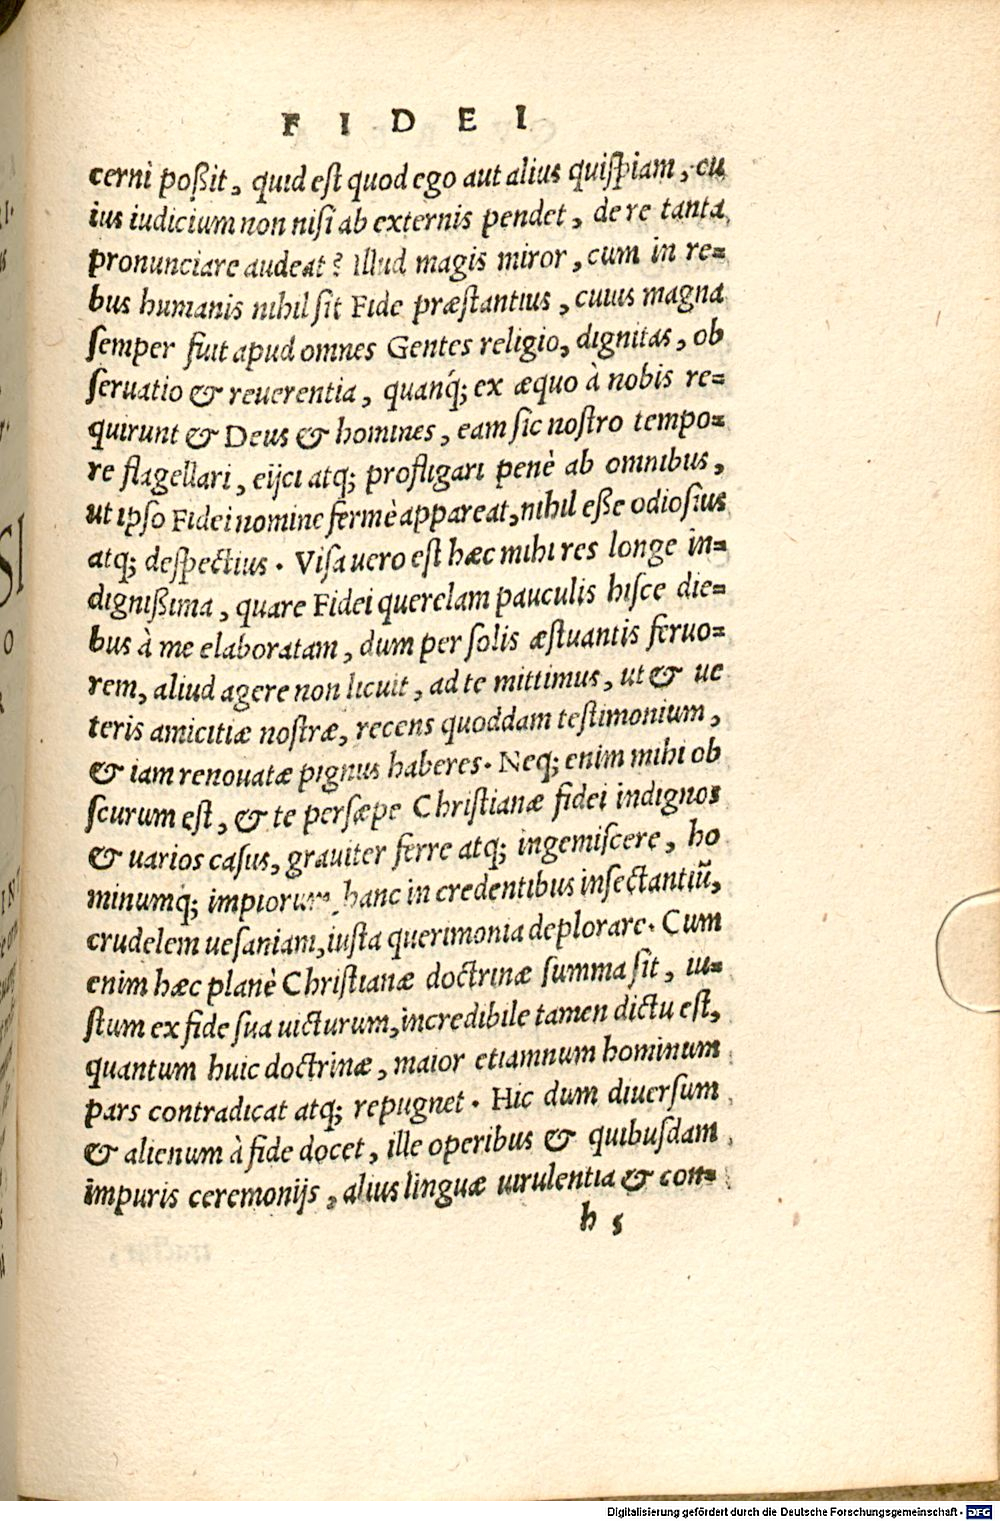 F I D E I
cerni poßit, quid eſt quod ego aut alius quiſpiam, cu
ius iudicium non niſi ab externis pendet, de re tanta
pronunciare audeat? illud magis miror, cum in re=
bus humanis nihil ſit Fide præſtantius, cuius magna
ſemper fuit apud omnes Gentes religio, dignitas, ob
ſeruatio & reuerentia, quanq́; ex æquo à nobis re=
quirunt & Deus & homines, eam ſic noſtro tempo=
re flagellari, eijci atq; profligari penè ab omnibus,
ut ipſo Fidei nomine fermè appareat, nihil eſſe odioſius
atq; deſpectius. Viſa uero eſt hæc mihi res longe in=
digniſſima, quare Fidei querelam pauculis hiſce die=
bus à me elaboratam, dum per ſolis æſtuantis feruo=
rem, aliud agere non licuit, ad te mittimus, ut & ue
teris amicitiæ noſtræ, recens quoddam teſtimonium,
& iam renouatæ pignus haberes. Neq; enim mihi ob
ſcurum eſt, & te perſæpe Chriſtianæ fidei indignos
& uarios caſus, grauiter ferre atq; ingemiſcere, ho
minumq́; impiorum hanc in credentibus inſectantiũ,
crudelem ueſaniam, iuſta querimonia deplorare. Cum
enim hæc planè Chriſtianæ doctrinæ ſumma ſit, iu=
ſtum ex fide ſua uicturum, incredibile tamen dictu eſt,
quantum huic doctrinæ, maior etiamnum hominum
pars contradicat atq; repugnet. Hic dum diuerſum
& alienum à fide docet, ille operibus & quibuſdam
impuris ceremonijs, alius linguæ uirulentia & con=
h 5
Digitalisierung gefördert durch die Deutsche Forschungsgemeinschaft - DFG